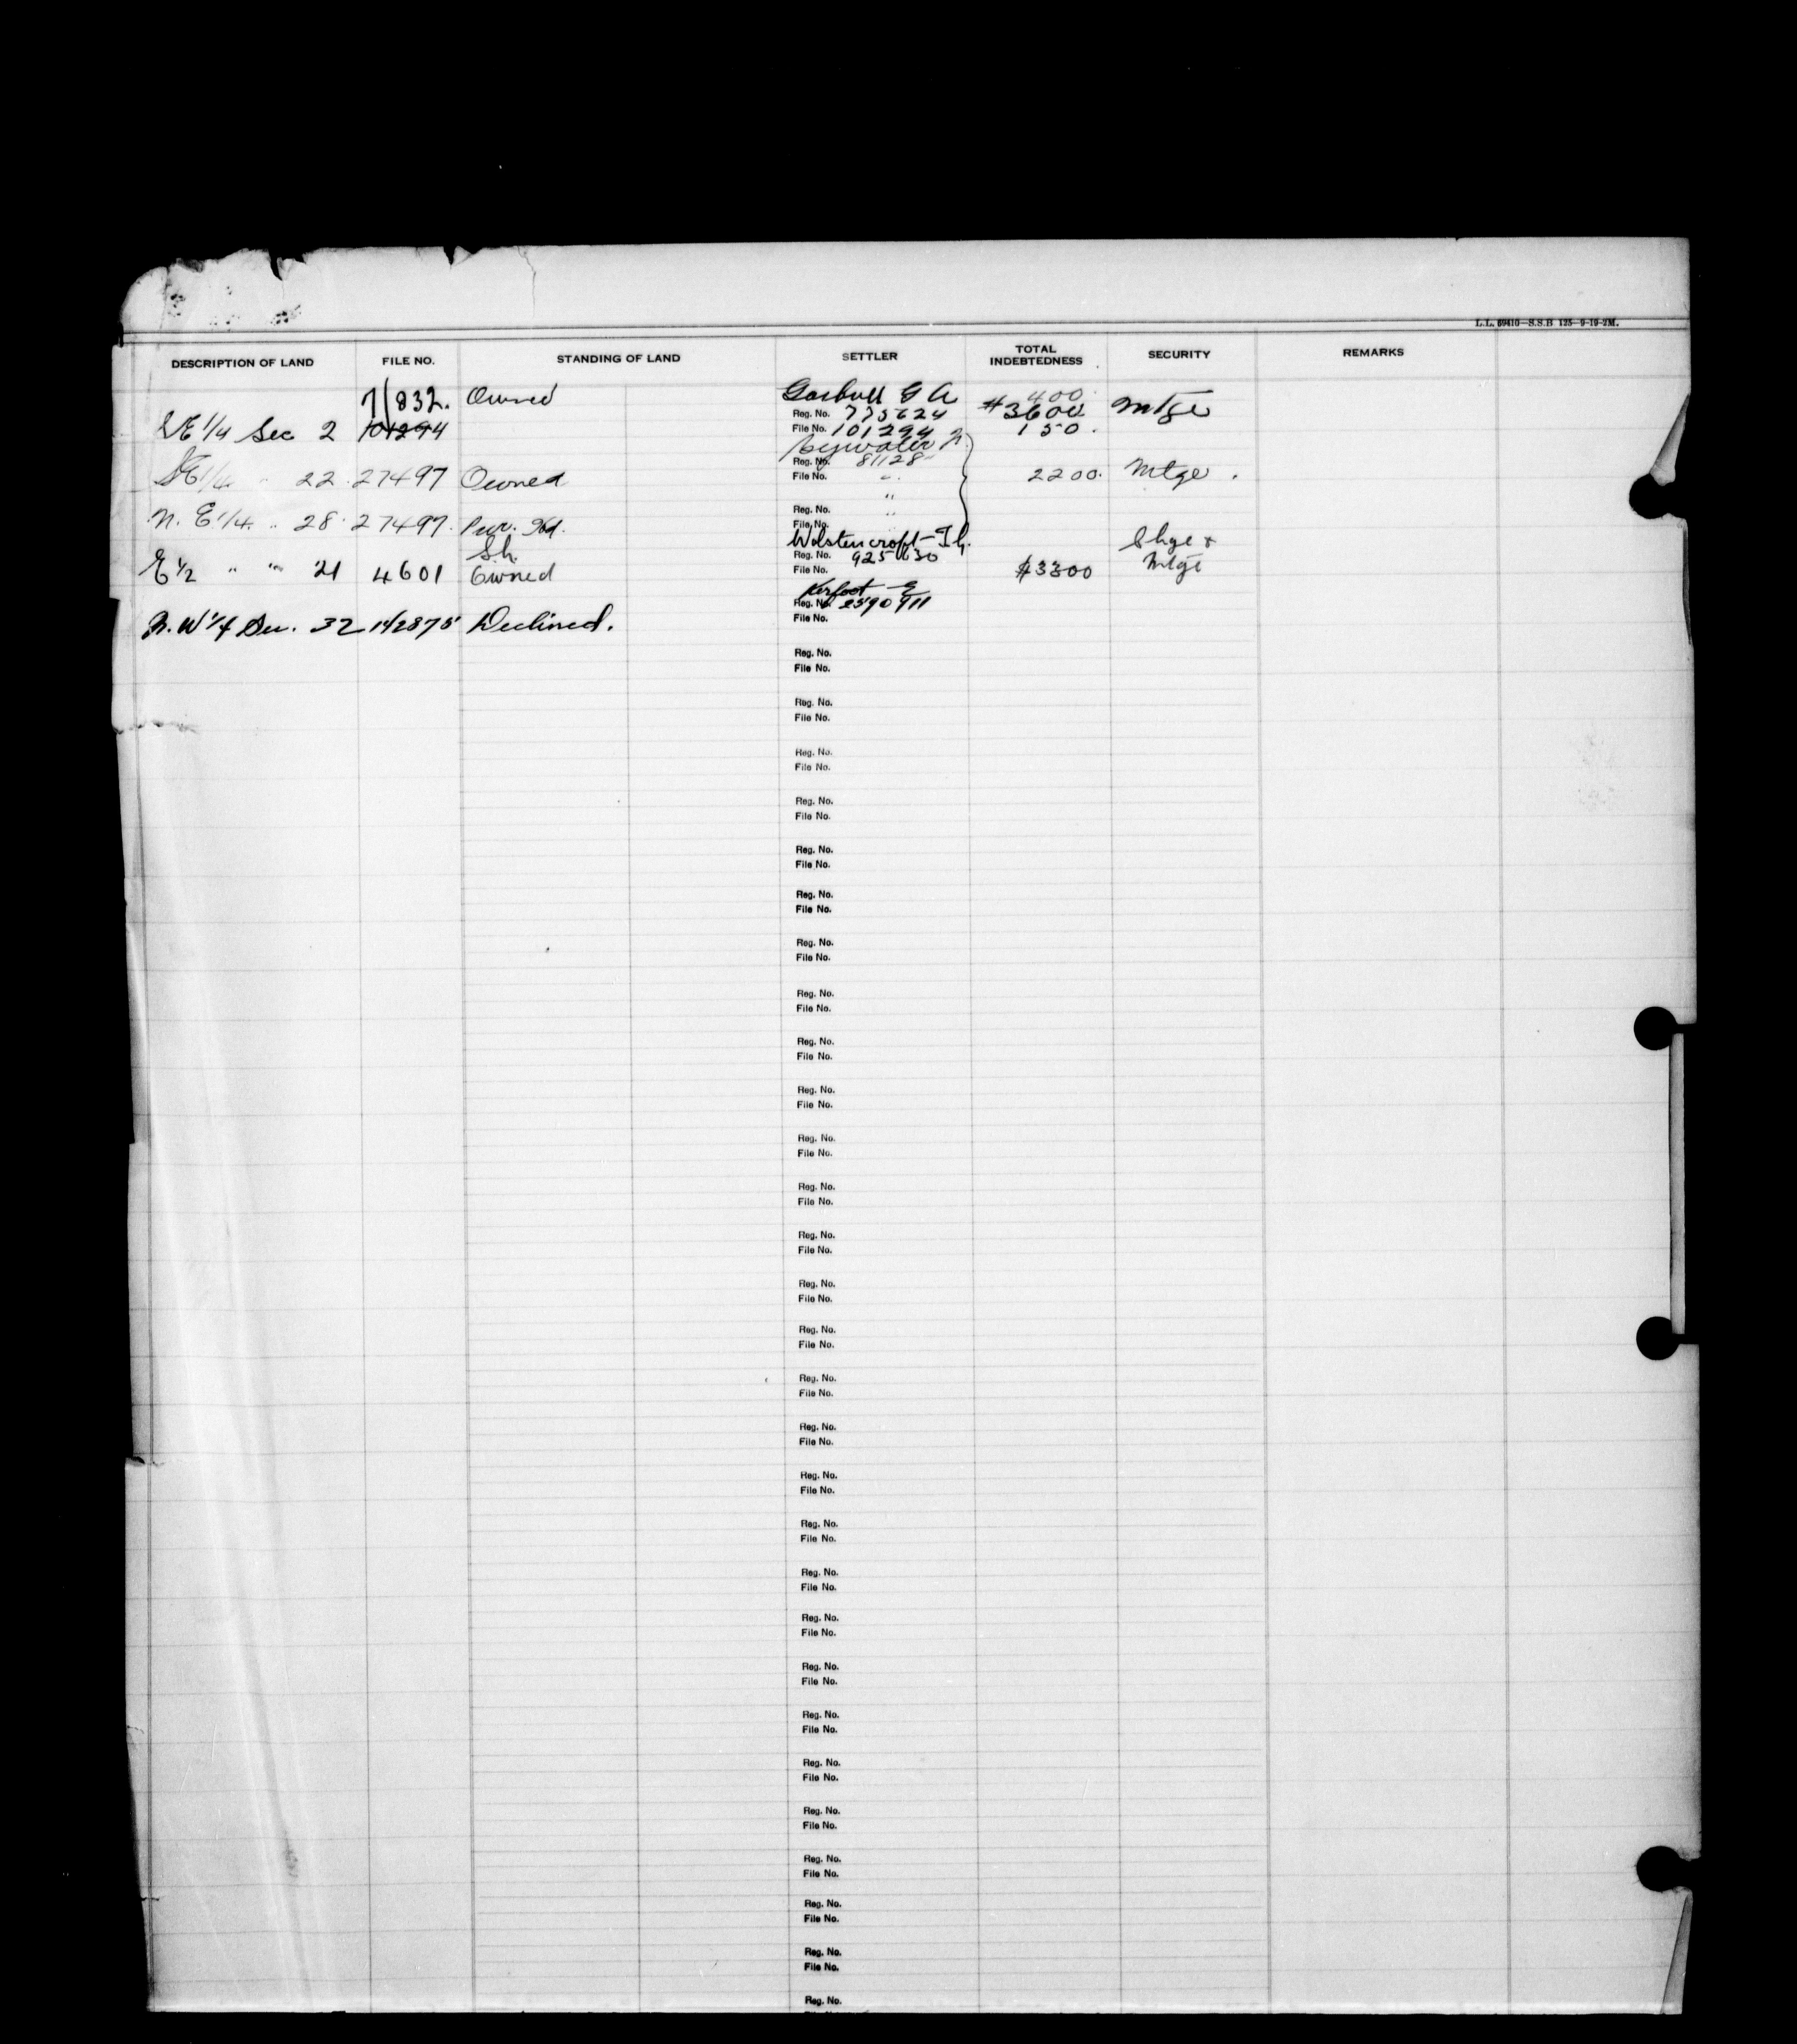 L.L. 59410—S.S.B 125—9-19-2M.
DESCRIPTION OF LAND FILE NO. STANDING OF LAND SETTLER TOTAL INDEBTEDNESS SECURITY REMARKS
71832. Owned G A 400.
Reg. No. 775624 $3600 Mtge
SE 1/4 Sec 2 101294 File No. 101294 150.
Bywater
Reg. No. 81128
SE 1/4 " 22. 27497 Owned File No. " 2200. Mtge.
"
Reg. No. "
N. E 1/4. " 28. 27497. Pur. File No.
Sh. Wolstencroft - Chge &
E 1/2 " " 21 4601 Owned Reg. No. 925630 Mtge
File No. $3300
Kerfoot
Reg. No. 2590911
N. W 1/4 Sec. 32 142875 Declined. File No.
Reg. No.
File No.
Reg. No.
File No.
Reg. No.
File No.
Reg. No.
File No.
Reg. No.
File No.
Reg. No.
File No.
Reg. No.
File No.
Reg. No.
File No.
Reg. No.
File No.
Reg. No.
File No.
Reg. No.
File No.
Reg. No.
File No.
Reg. No.
File No.
Reg. No.
File No.
Reg. No.
File No.
Reg. No.
File No.
Reg. No.
File No.
Reg. No.
File No.
Reg. No.
File No.
Reg. No.
File No.
Reg. No.
File No.
Reg. No.
File No.
Reg. No.
File No.
Reg. No.
File No.
Reg. No.
File No.
Reg. No.
File No.
Reg. No.
File No.
Reg. No.
File No.
Reg. No.